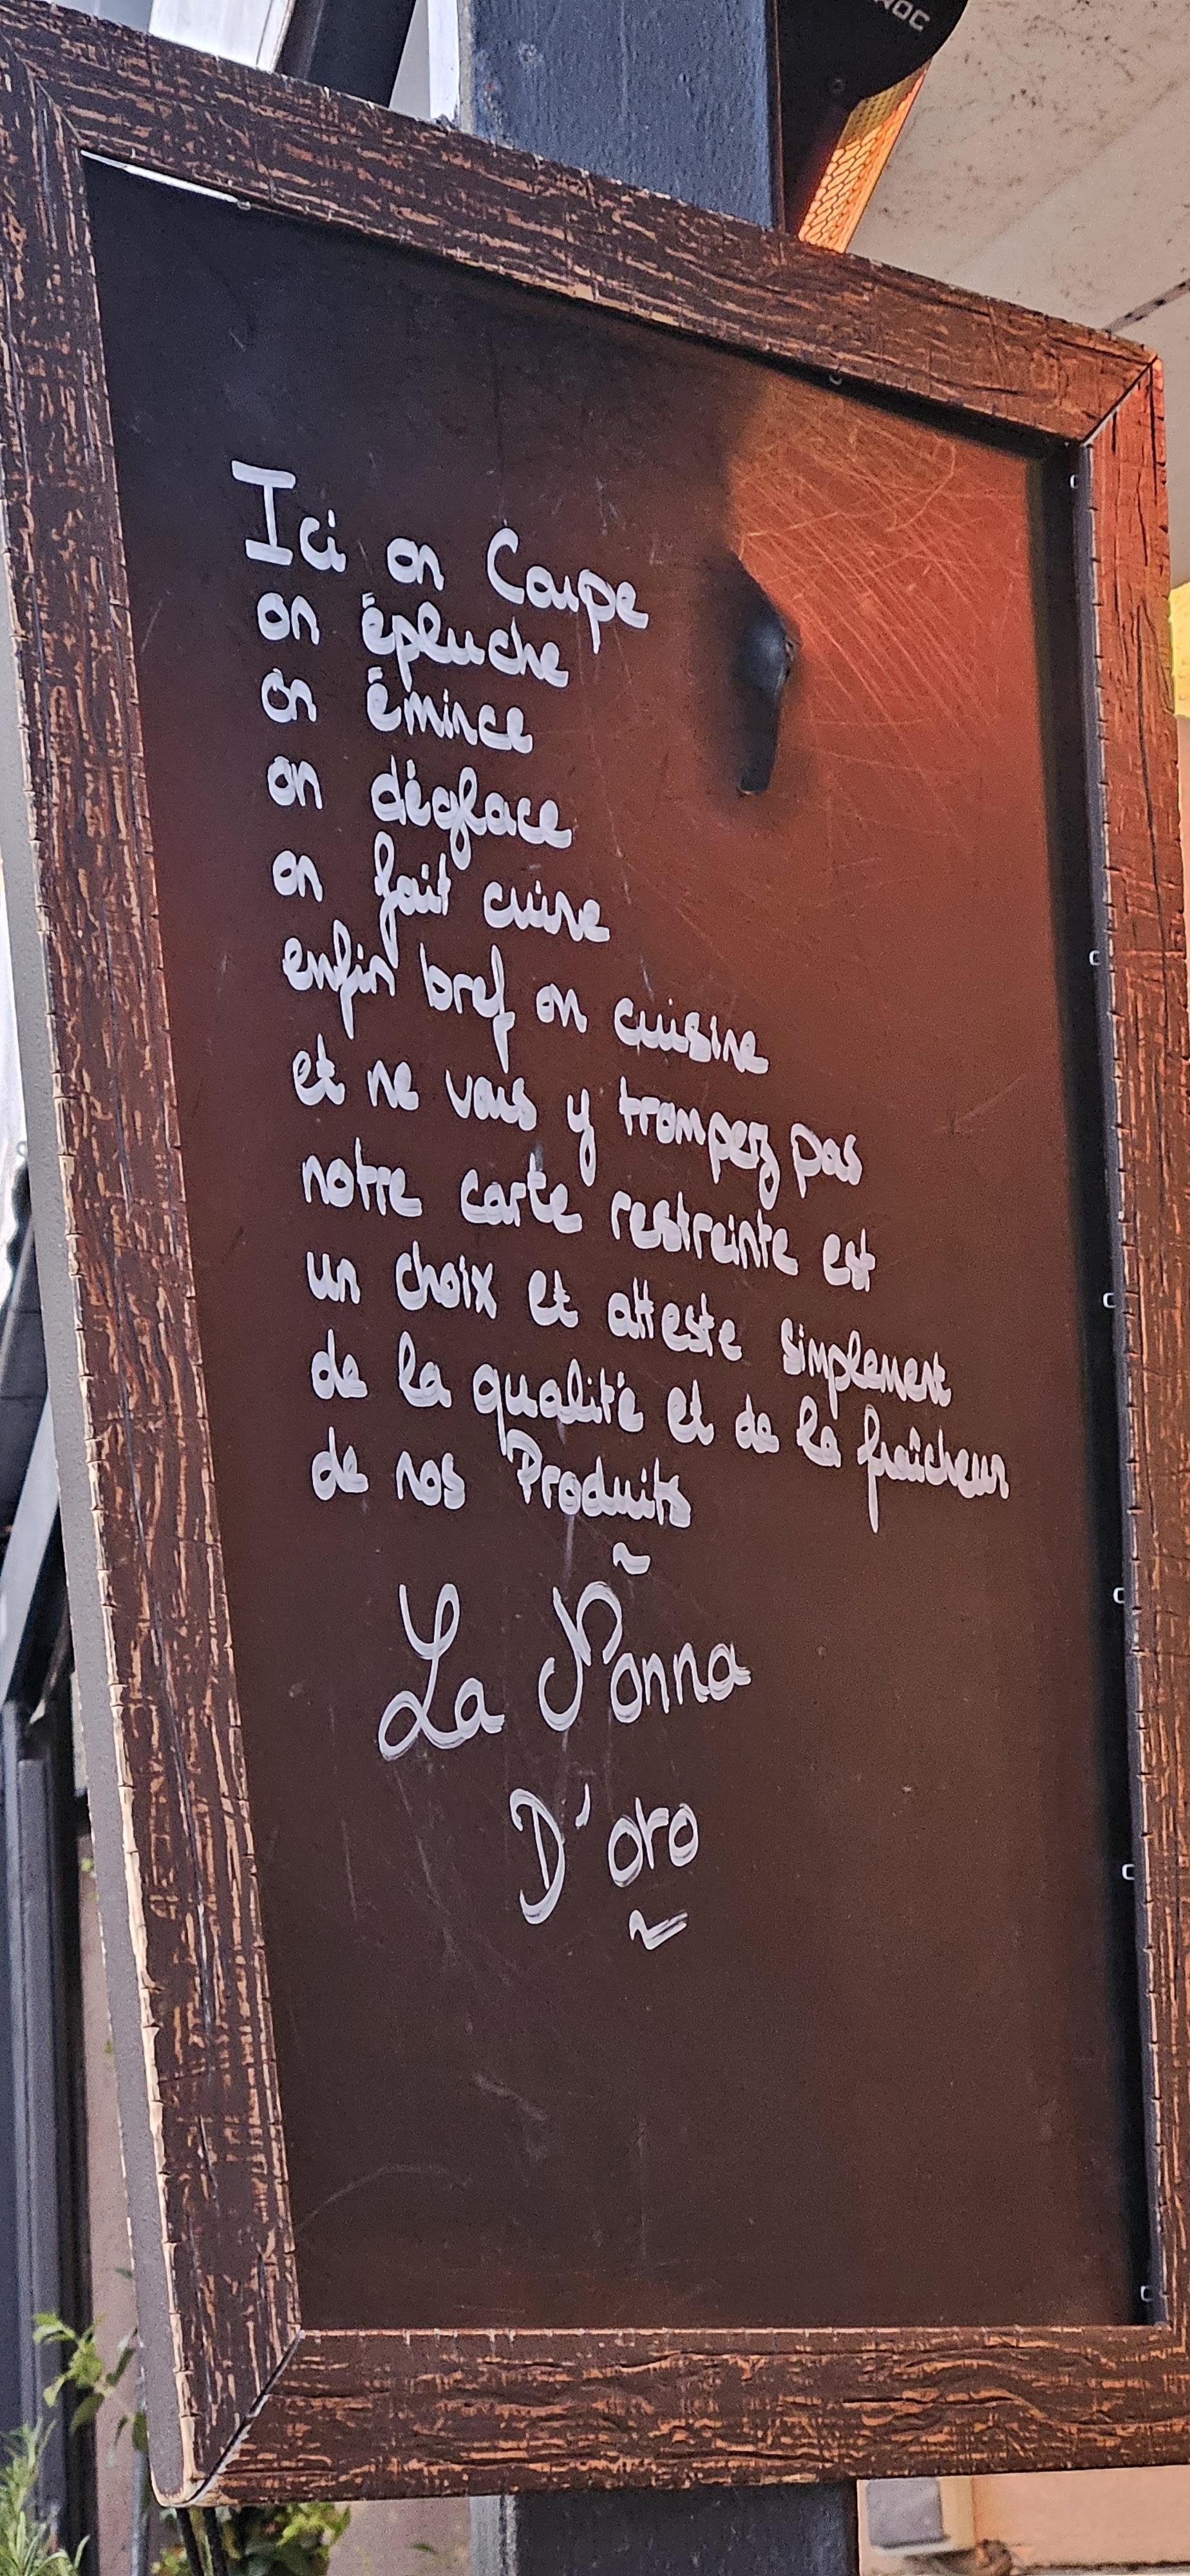 Ici on Coupe
on épluche
on émince
on déglace
on fait cuire
enfin bref on cuisine
et ne vous y trompez pas
notre carte restreinte est
un choix et atteste simplement
de la qualité et de la fraîcheur
de nos Produits
~
La Nonna
D'oro
~